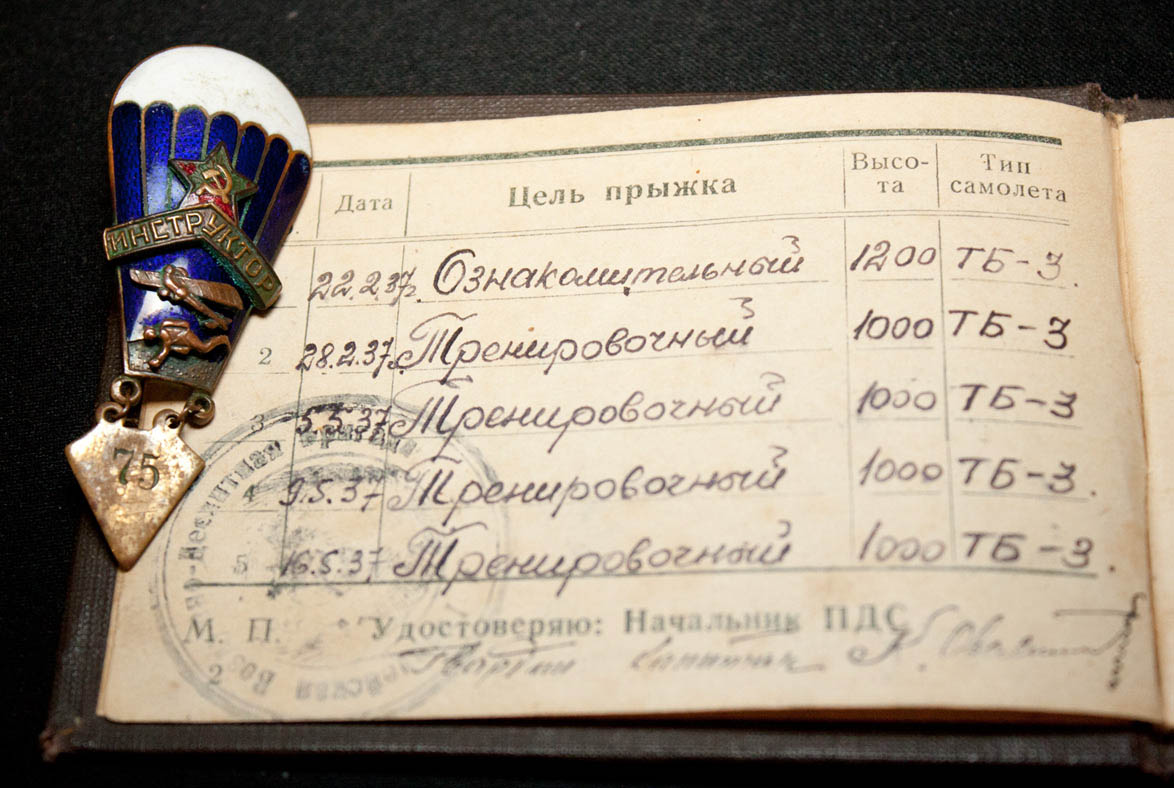 ИНСТРУКТОР
75
Дата Цель прыжка Высо-та Тип самолета
22.2.37г. Ознакомительный 1200 ТБ-3
2 28.2.37г. Тренировочный 1000 ТБ-3
3 5.5.37 Тренировочный 1000 ТБ-3
4 9.5.37 Тренировочный 1000 ТБ-3.
5 16.5.37 Тренировочный 1000 ТБ-3.
М. П. Удостоверяю: Начальник ПДС
Гвардии капитан
2
-Десантная бригада